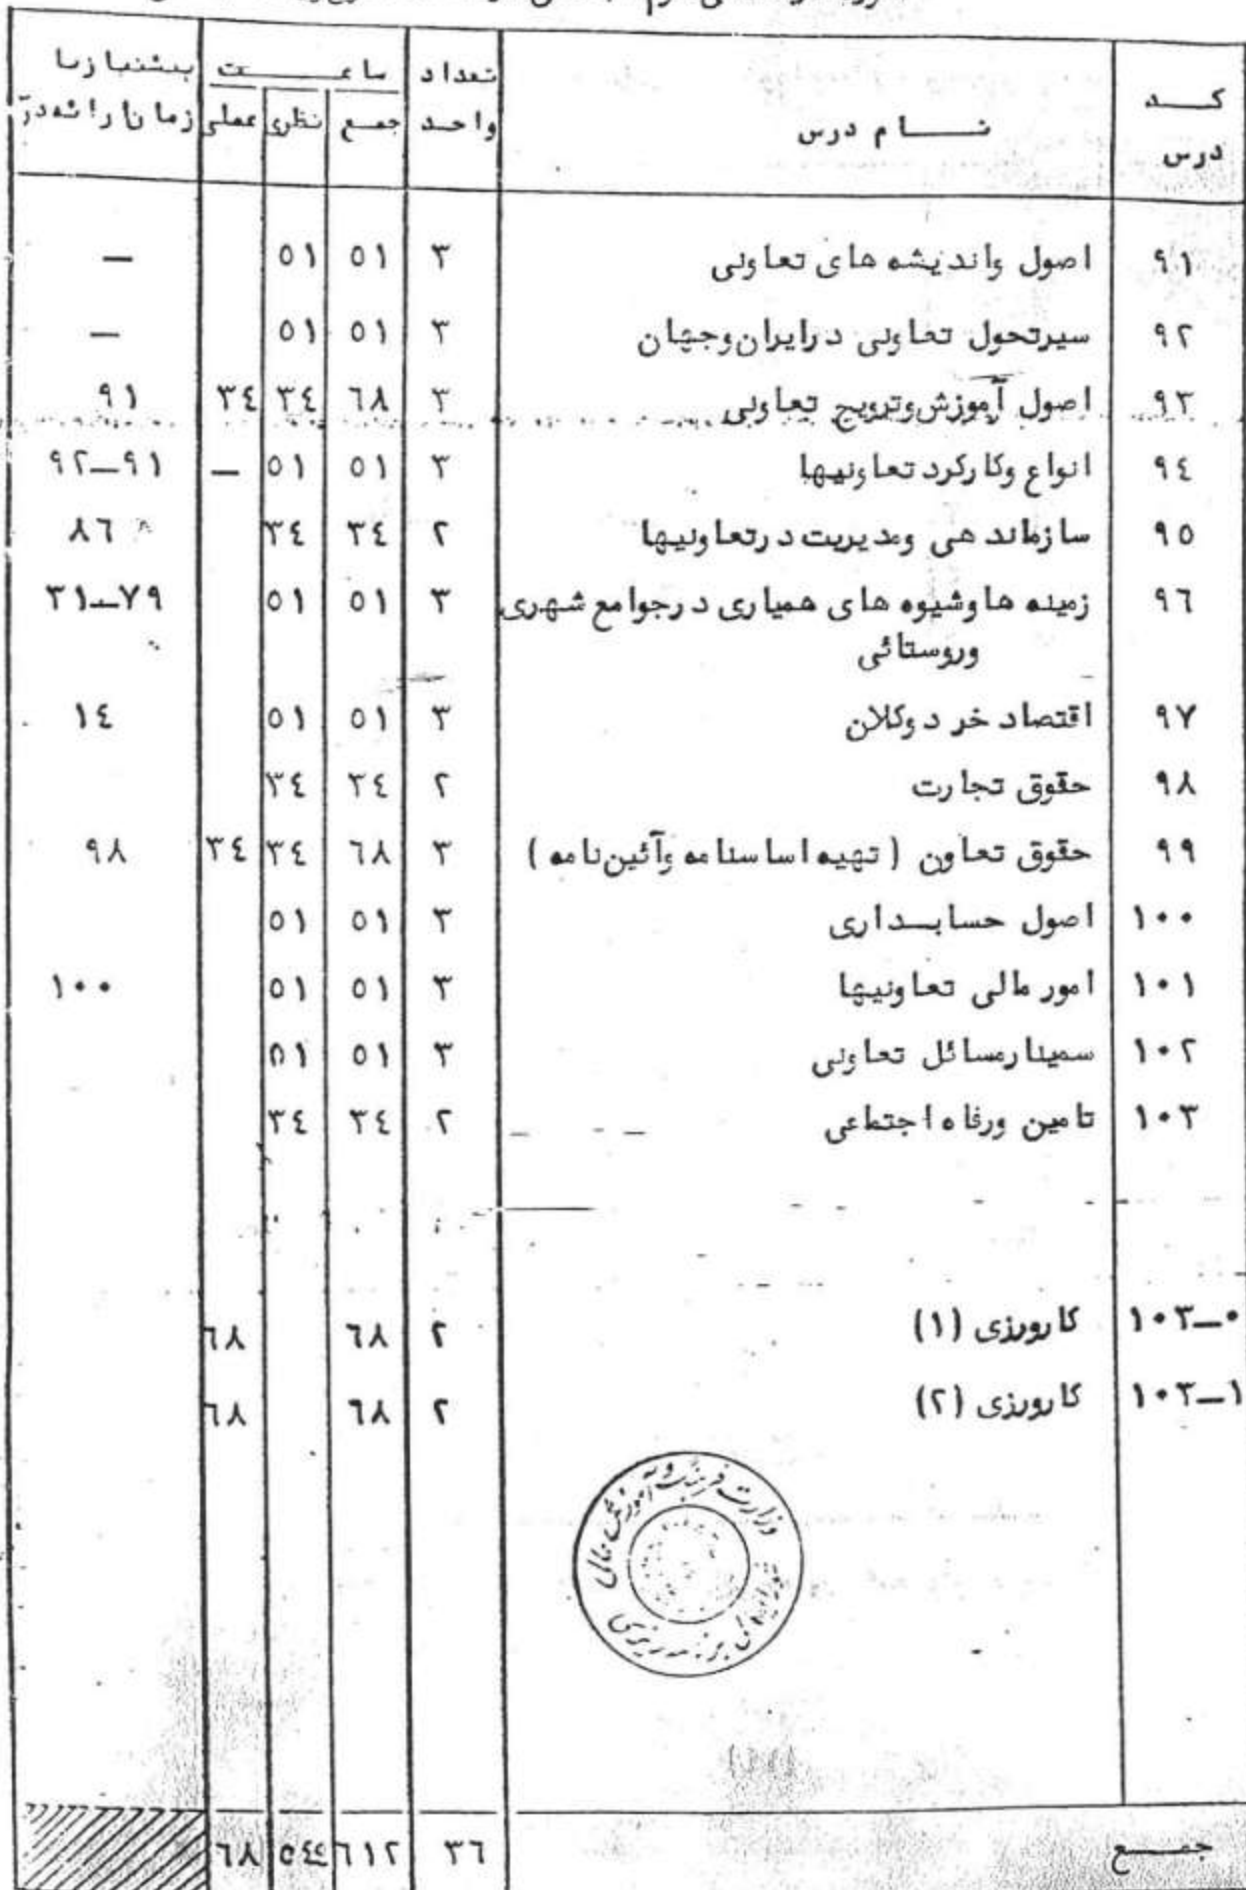 کد درس | نام درس | تعداد واحد | ساعت: جمع | نظری | عملی | پیشنیاز یا زمان ارائه درس
۹۱ | اصول واندیشه های تعاونی | ۳ | ۵۱ | ۵۱ | | —
۹۲ | سیرتحول تعاونی درایران وجهان | ۳ | ۵۱ | ۵۱ | | —
۹۳ | اصول آموزش وترویج تعاونی | ۳ | ۶۸ | ۳۴ | ۳۴ | ۹۱
۹۴ | انواع وکارکرد تعاونیها | ۳ | ۵۱ | ۵۱ | — | ۹۱—۹۲
۹۵ | سازماندهی ومدیریت درتعاونیها | ۲ | ۳۴ | ۳۴ | | ۸۶
۹۶ | زمینه هاوشیوه های همیاری درجوامع شهری | ۳ | ۵۱ | ۵۱ | | ۷۹—۳۱
وروستائی
۹۷ | اقتصاد خرد وکلان | ۳ | ۵۱ | ۵۱ | | ۱۴
۹۸ | حقوق تجارت | ۲ | ۳۴ | ۳۴
۹۹ | حقوق تعاون ( تهیه اساسنامه وآئین نامه ) | ۳ | ۶۸ | ۳۴ | ۳۴ | ۹۸
۱۰۰ | اصول حسابداری | ۳ | ۵۱ | ۵۱
۱۰۱ | امور مالی تعاونیها | ۳ | ۵۱ | ۵۱ | | ۱۰۰
۱۰۲ | سمینارمسائل تعاونی | ۳ | ۵۱ | ۵۱
۱۰۳ | تامین ورفاه اجتماعی | ۲ | ۳۴ | ۳۴
۱۰۳—۰ | کارورزی (۱) | ۲ | ۶۸ | | ۶۸
۱۰۳—۱ | کارورزی (۲) | ۲ | ۶۸ | | ۶۸
وزارت فرهنگ و آموزش عالی
شورایعالی برنامه ریزی
جمع | ۳۶ | ۶۱۲ | ۵۴۴ | ۶۸